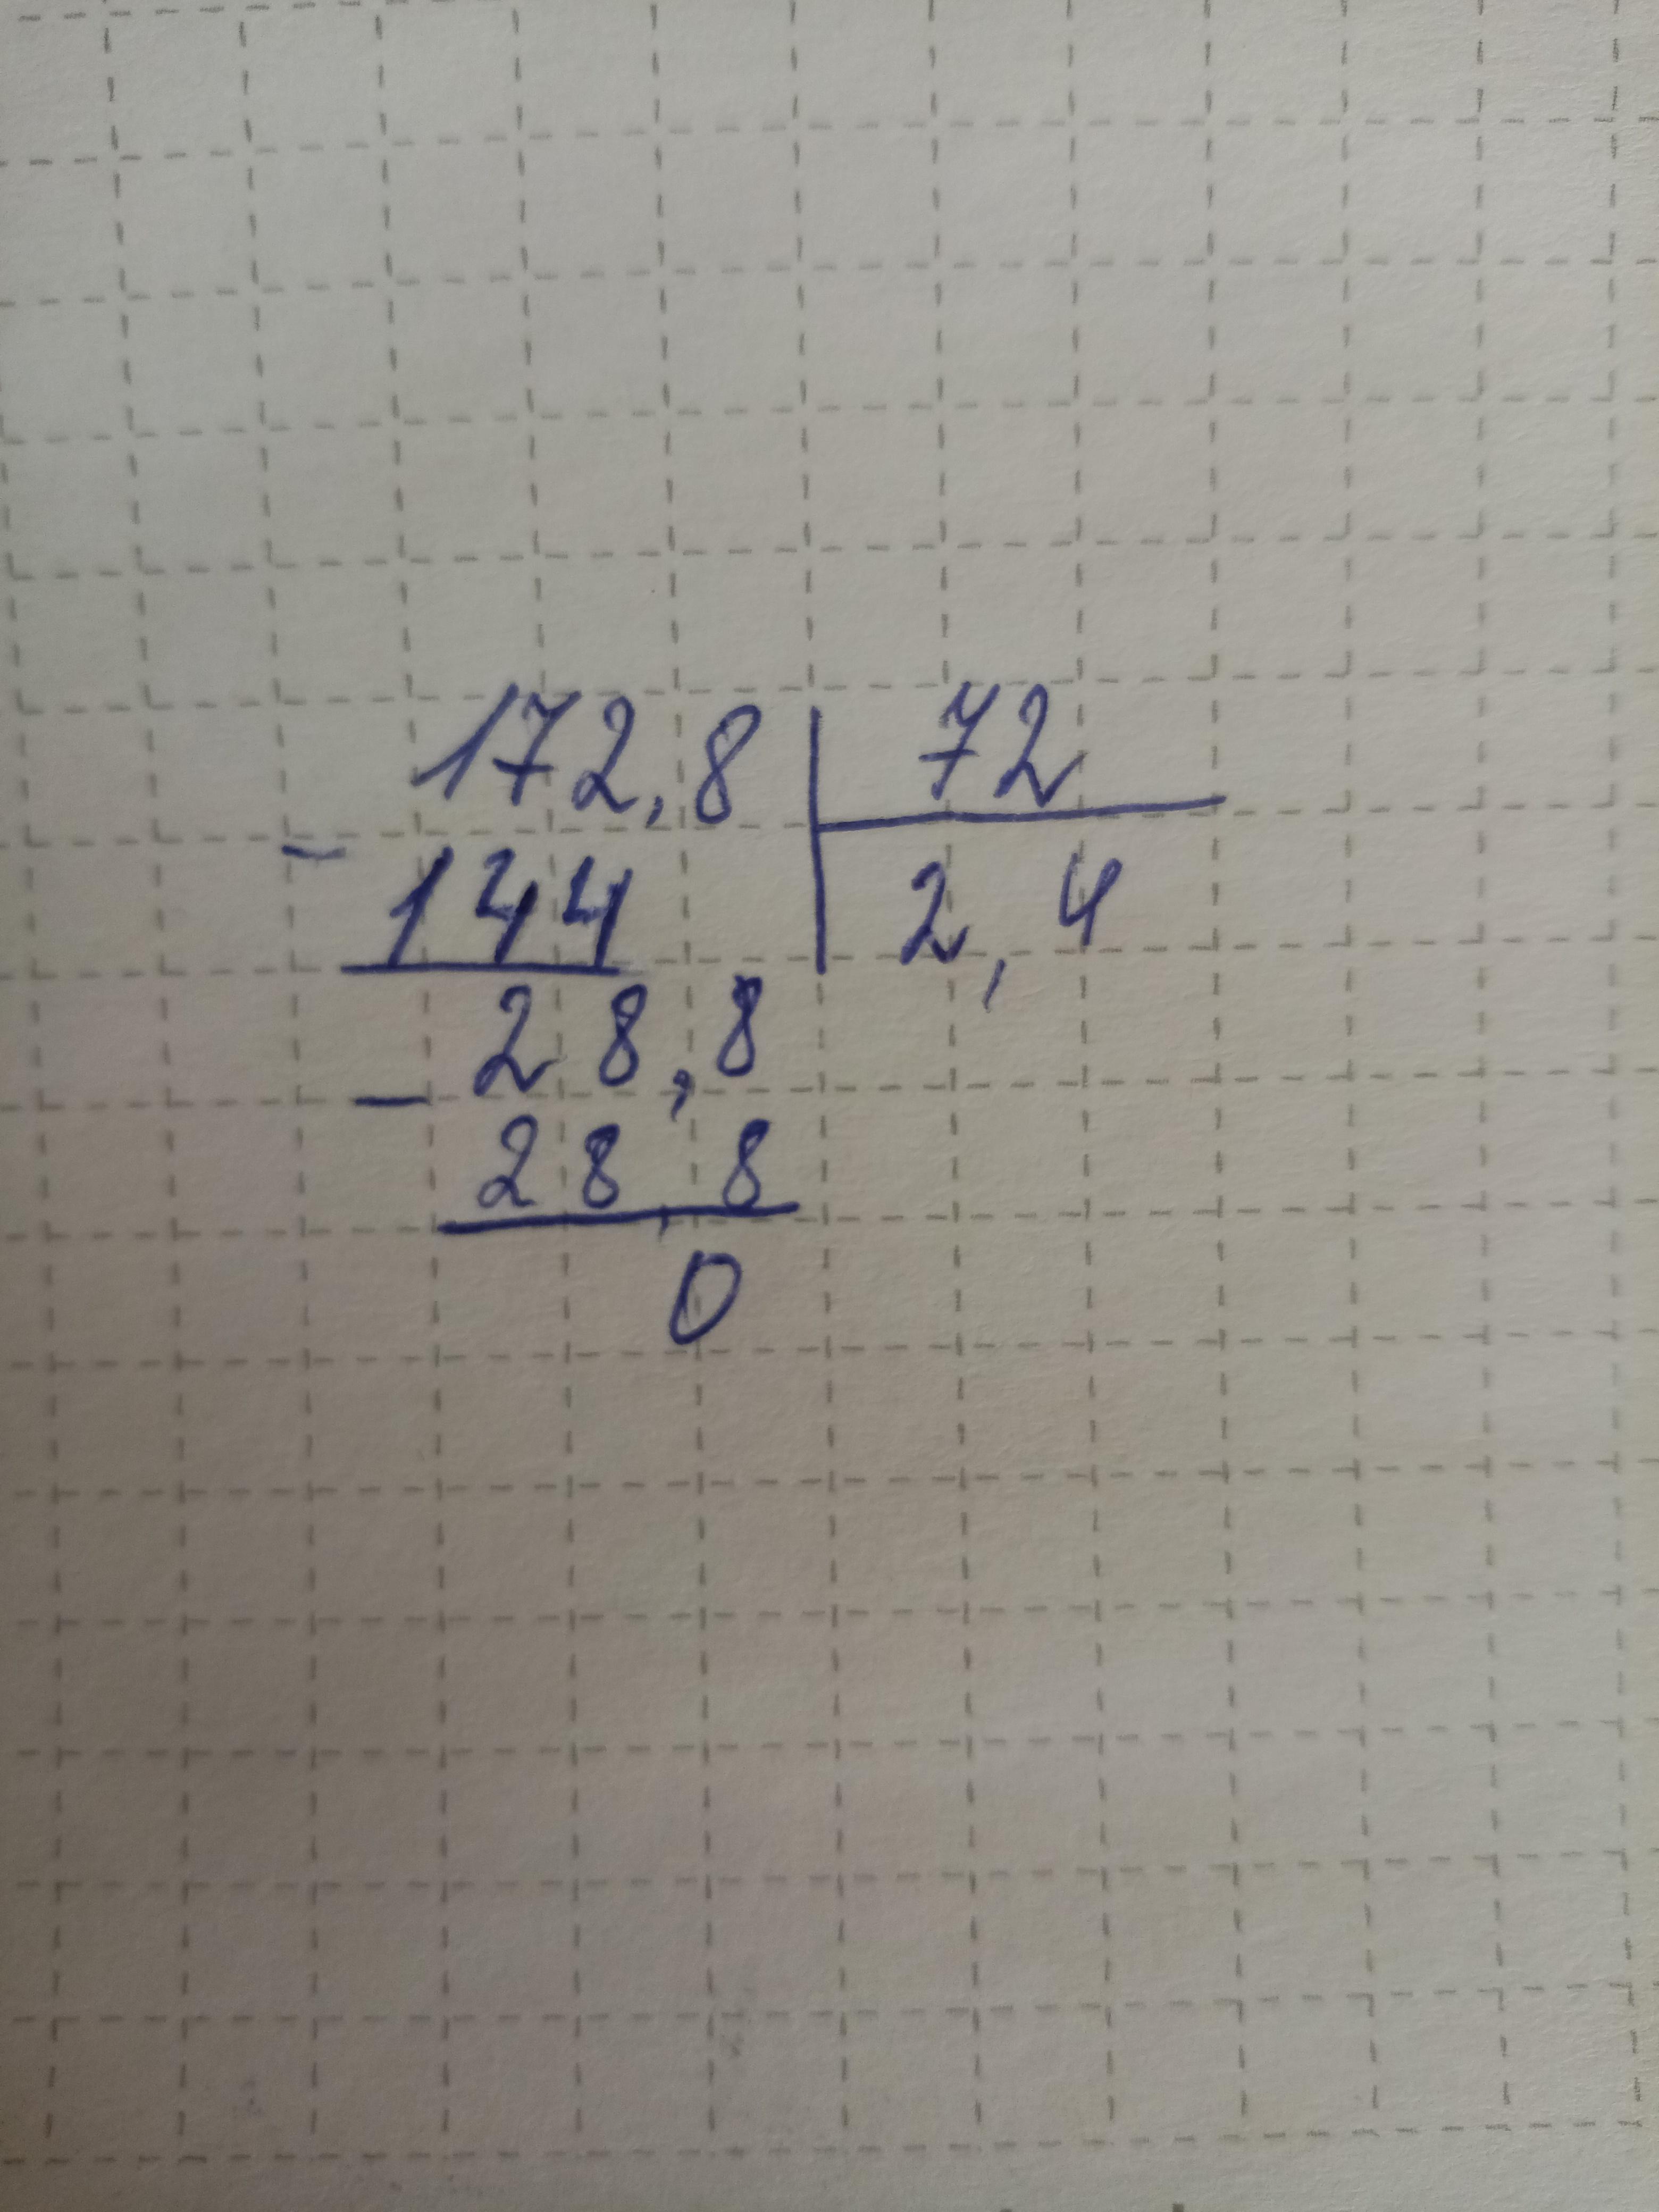 172,8 72
- 144 2,4
28,8
- 28,8
0